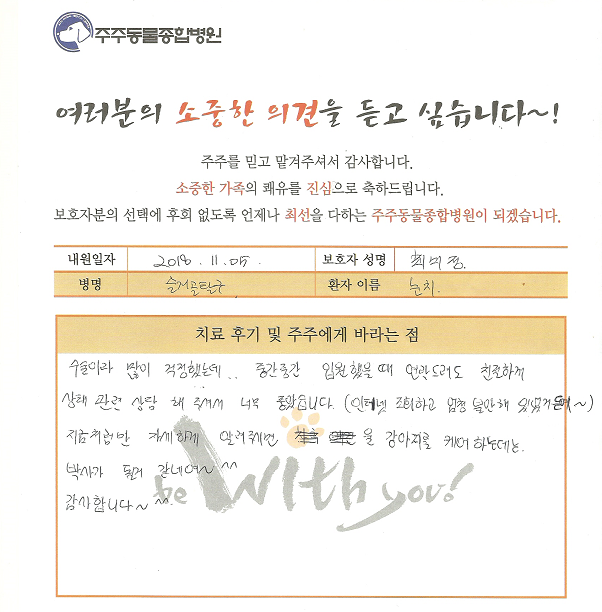 주주동물종합병원
여러분의 소중한 의견을 듣고 싶습니다~!
주주를 믿고 맡겨주셔서 감사합니다.
소중한 가족의 쾌유를 진심으로 축하드립니다.
보호자분의 선택에 후회 없도록 언제나 최선을 다하는 주주동물종합병원이 되겠습니다.
내원일자 2018. 11. 05. 보호자 성명 최미정.
병명 슬개골탈구 환자 이름
치료 후기 및 주주에게 바라는 점
수술이라 많이 걱정했는데.. 중간중간 입원했을 때 연락드려도 친절하게
상태 관련 상담 해 주셔서 너무 좋았습니다. (인터넷 조회하고 엄청 불안해 있었거든요~)
지금처럼만 자세하게 알려주시면 을 강아지를 케어 하는데는.
박사가 될거 같네여~^^
감사합니다~^^.
be With you!